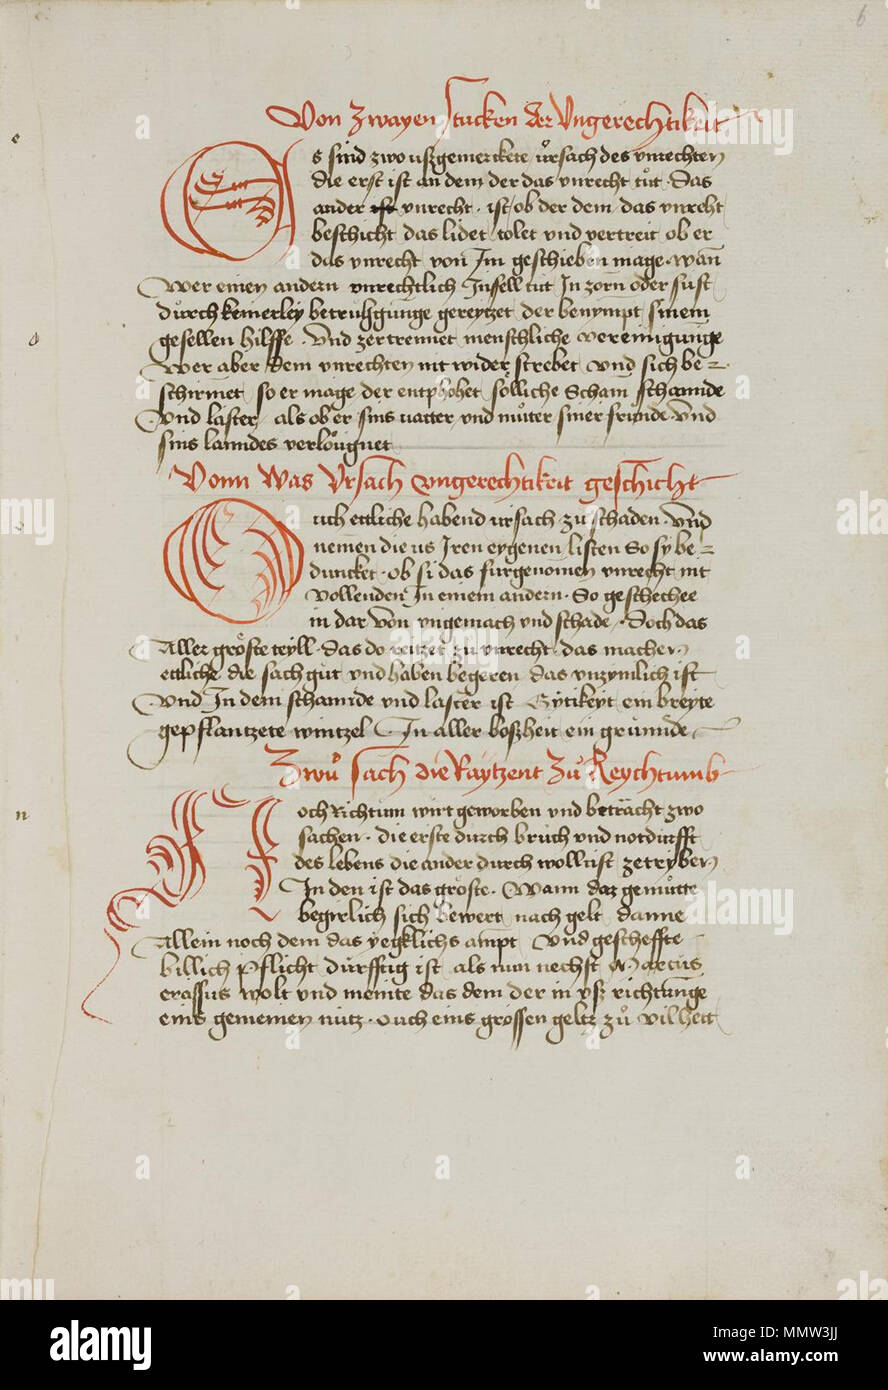 6
Von zwayen stucken der Ungerechtikeit
Es sind zwo ußgemerckete ursach des unrechten
die erst ist an dem der das unrecht tůt · Das
ander ist unrecht · ist ob der dem das unrecht
beschicht das lidet tolet und vertreit ob er
das unrecht von Im geschieben mage · wan̄
Wer einen andern unrechtlich Inffell tůt In zorn oder sust
durch keinerley betrubgunge gereytzet der benympt sinem
gesellen hilffe · Und zertrennet menschliche vereinigunge
Wer aber dem unrechten nit wider strebet und sich be=
schirmet so er mage der entpfohet sölliche Scham schannde
Und laster als ob er sins vatter und můter siner frunde · Und
sins lanndes verlöugnet
Vonn was Ursach ungerechtikeit geschicht
Ouch ettliche habend ursach zu schaden · Und
nemen die us Iren eygenen listen So sy be=
duncket · ob si das furgenomen unrecht nit
vollenden In einem andern · So geschechee
in dar von ungemach und schade · Doch das
Aller gröste teyll · das do reitzet zu unrecht das machen
ettliche die sach gut und haben begeren das unzymlich ist
Und In dem schannde und laster ist Gytikeyt ein breyte
gepflantzete wurtzel In aller boßheit ein grunnde
Zwů sach die Raytzent Zů Reychtumb
Noch Richtum wirt geworben und betracht zwo
sachen · die erste durch bruch und notdurfft
des lebens die ander durch wollust zetryben
In den ist das gröste · Wann daz gemůtte
begirlich sich bewert nach gelt danne
Allein noch dem das yegklichs ampt Und gescheffte
billich pflicht durfftig ist als nun nechst Marcus
crassus wolt und meinte das dem der in uß richtunge
eins gemeinen nutz · Ouch eins grossen geltz zů vil hett
e
o
n
alamy
alamy
Image ID: MMW3JJ
www.alamy.com